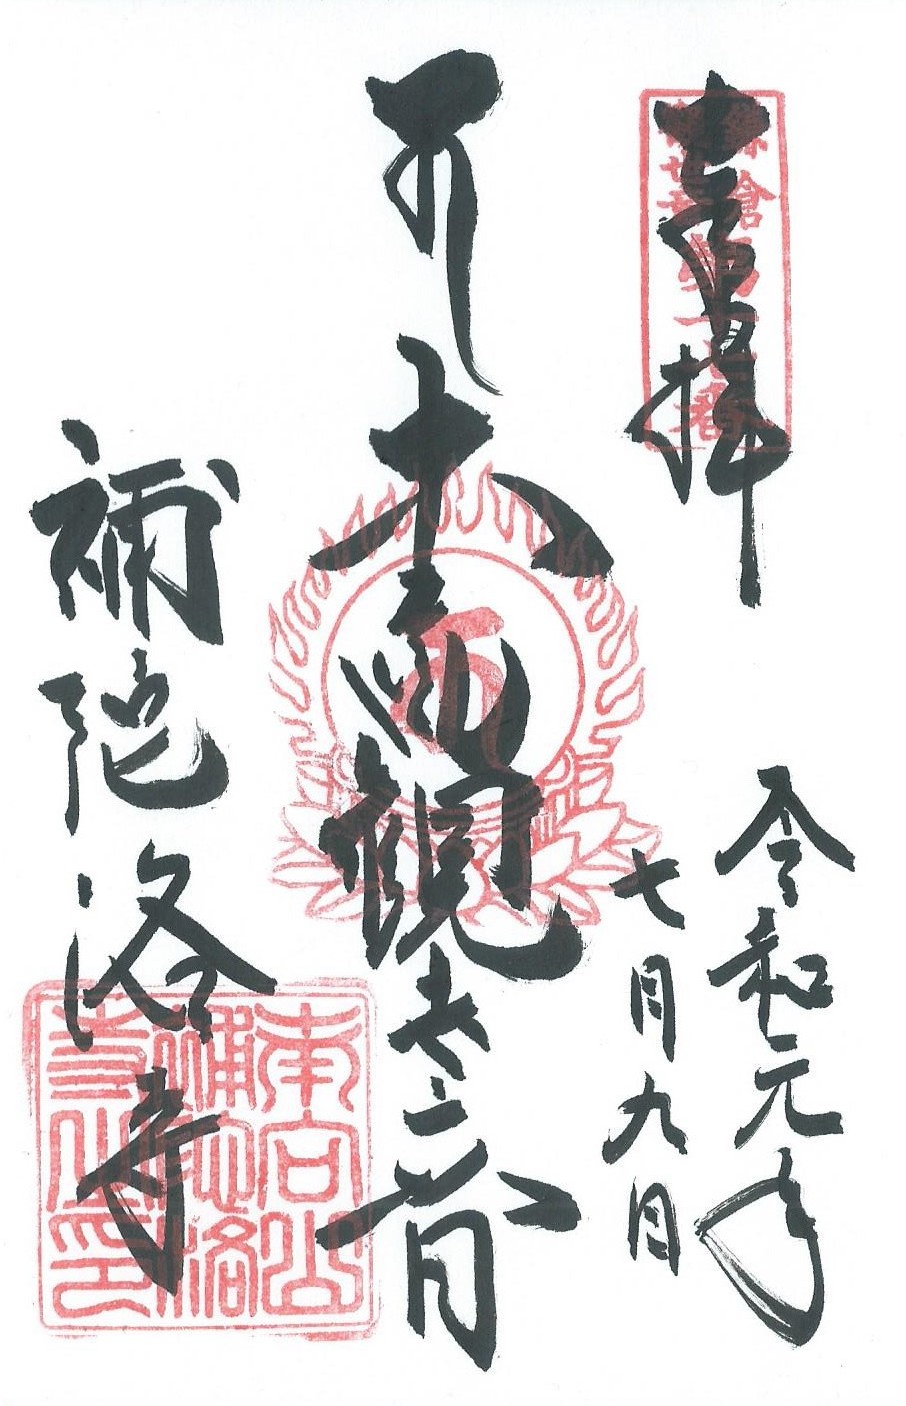 奉拝
鎌倉
第十七番
令和元年
七月九日
十一面観世音
補陀洛寺
南向山
補陀洛
寺之印